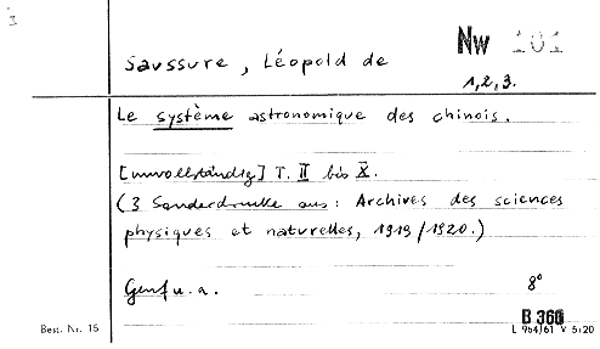 3
Nw 101
Saussure, Léopold de
1,2,3.
Le système astronomique des chinois.
[unvollständig] T. II bis X.
(3 Sonderdrucke aus: Archives des sciences
physiques et naturelles, 1919/1920.)
Genf u.a. 8°
B 360
Best. Nr. 15 L 964/61 V 5:20